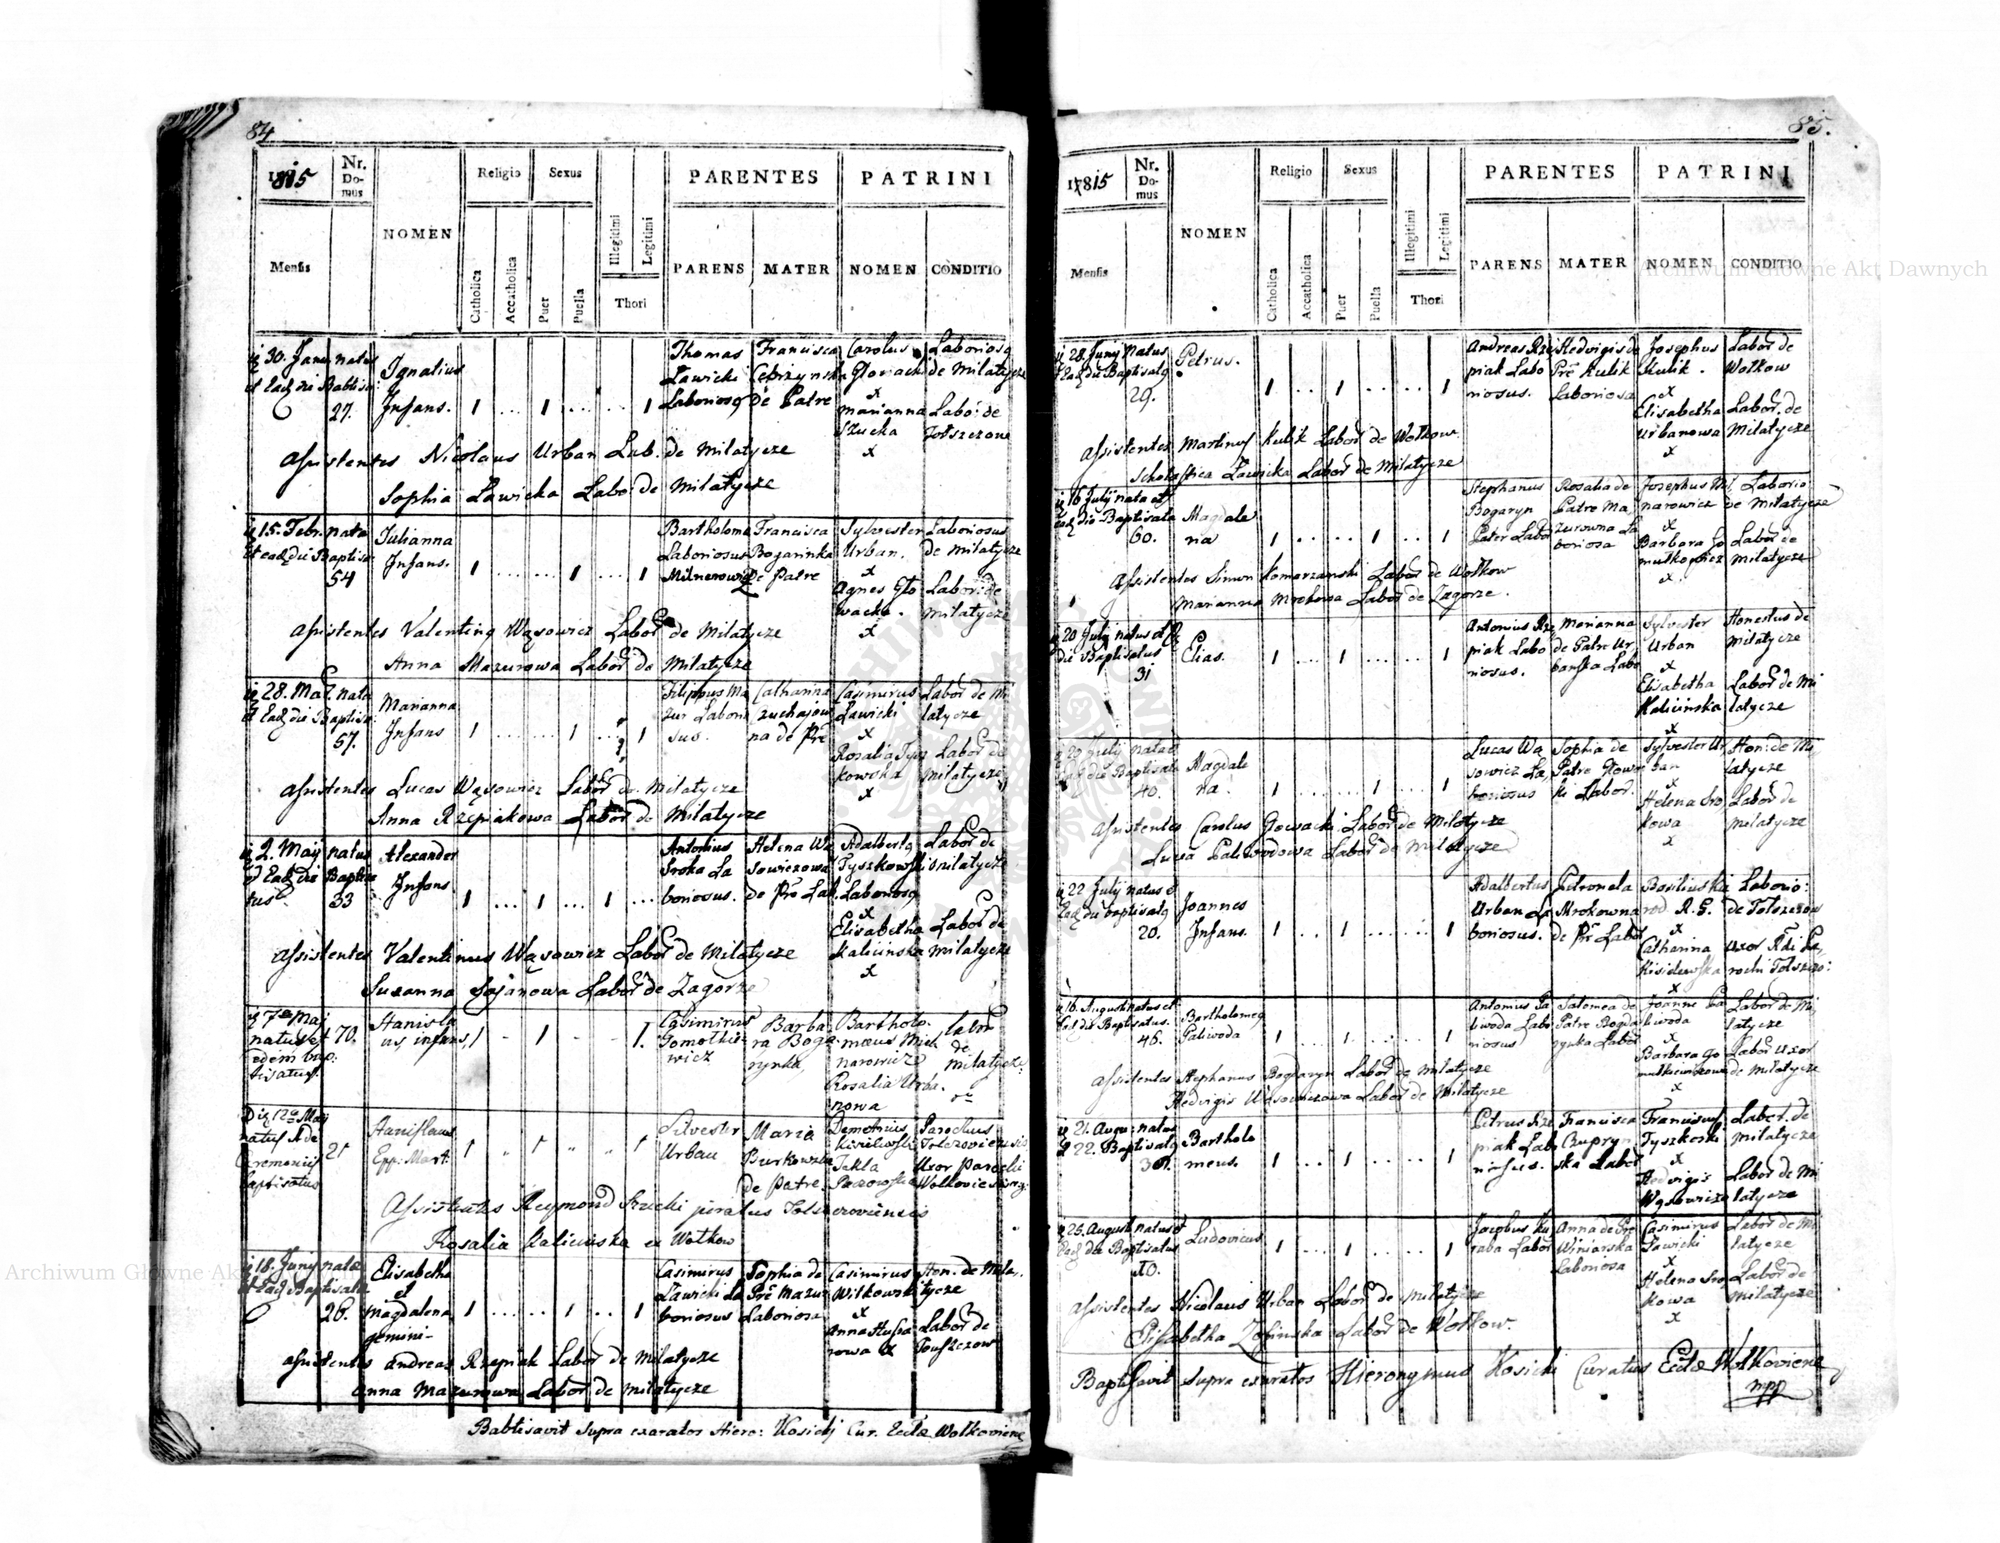 84
1815
Nr. Domus
NOMEN
Religio
Sexus
PARENTES
PATRINI
Mensis
Catholica
Accatholica
Puer
Puella
Illegitimi
Legitimi
Thori
PARENS
MATER
NOMEN
CONDITIO
30. Janu natus
et Ead die Babtis:
27.
Ignatius
Infans.
1 ... 1 ... ... 1
Thomas
Lawicki
Laborios
Francisca
de Patre
Carolus
Glowach
x
Marianna
Szucka
x
Laborios
de Milatycze
Labo: de
Tołszczone
Assistentes Nicolaus Urban Lab. de Milatycze
Sophia Lawicka Labo de Milatycze
15. Febr. nata
et ead die Baptis
54
Julianna
Infans.
1 ... ... 1 ... 1
Bartholome
Laboriosus
Milnerowicz
Francisca
Bogarinka
de Patre
Sylvester
Urban.
x
Agnes Glo
wacka.
x
Laboriosus
de Milatycze
Labor: de
Milatycze
Assistentes Valentinq Wąsowicz Labor de Milatycze
Anna Mazurowa Labor de Milatycze
28. Mar. nata
et Ead die Baptis:
57.
Marianna
Infans
1 ... ... 1 ... 1
Filiphus Ma
zur Labori
sus.
Catharina
zuchajow
na de Pre
Casimirus
Lawicki
x
Rosalia Tysz
kowska
x
Labor de Mi
latycze
Labor de
Milatycze
Assistentes Lucas Wąsowicz Labor de Milatycze
Anna Rzepiakowa Labor de Milatycze
2. Maij natus
et Ead die Baptisa
tus
33
Alexander
Infans
1 ... 1 ... 1 ...
Antonius
Sroka La
boriosus.
Helena Wą
sowiczowa
de Pre Lab.
Adalbertq
Tyszkowski
Laboriosq
x
Elisabetha
Kalicinska
x
Labor de
Milatycze
Labor de
Milatycze
Assistentes Valentinus Wąsowicz Labor de Milatycze
Susanna Sojanowa Labor de Zagorze
7ma Maj
natus e
edem bap:
tisatus.
70.
Stanisla
us, infans,
1 - 1 - - 1.
Casimirus
Tomotkie
wicz
Barba
ra Boga
rynka,
Bartholo.
maeus Mich
narowicz
Rosalia Urba.
nowa
labor
de
Milatycz:
12a Maij
natus
Ceremonijs
baptisatus
21
Stanislaus
Epp: Mart:
1 " 1 " " 1
Silvester
Urban
Maria
Burkowska
de Patre.
Demetrius
Kisielewski
Tekla
Parochus
Tolszoviensis
Uxor Parochi
Assistentes Reymond Szucki
Rosalia Kalicinska ex Wołkow
18. Junij natae
et Ead Baptisatae
26.
Elisabetha
et
Magdalena
gemini-
1 ... ... 1 ... 1
Casimirus
Lawicki La
boriosus
Sophia de
Pre Mazur
Laboriosa
Casimirus
Witkowski
x
Anna Husa
rowa x
Hon. de Mila,
tycze
Labor de
Touszczow
Assistentes Andreas Rzepiak Labor de Milatycze
Anna Mazurowa Labor de Milatycze
Babtisavit supra exaratos Hiero: Kosicki Cur. Eccae Wołkoviene
85.
1815
Nr. Domus
NOMEN
Religio
Sexus
PARENTES
PATRINI
Mensis
Catholica
Accatholica
Puer
Puella
Illegitimi
Legitimi
Thori
PARENS
MATER
NOMEN
CONDITIO
28. Junij Natus
et Ead die Baptisatq
29.
Petrus.
1 ... 1 ... ... 1
Andreas Rze
piak Labo
riosus.
Hedvigis de
Pre Kulik
Laboriosa
Josephus
Kulik.
x
Elisabetha
Urbanowa
x
Labor de
Wołkow
Labor. de
Milatycze
Assistentes Martinus Kulik Labor de Wołkow
Scholastica Lawicka Labor de Milatycze
16 Julij nata et
ead die Baptisata
60.
Magdale
na
1 ... ... 1 ... 1
Stephanus
Bogaryn
Pater Labor
Rosalia de
Patre Ma
zurowna La
boriosa
Josephus Mil
narowicz
x
Barbara Go
mułkowicz
x
Laborio
de Milatycze
Labor de
Milatycze
Assistentes Simon Komarzanski Labor de Wołkow
Marianna Mrokowa Labor de Zagorze.
20 Julij natus et
die Baptisatus
31
Elias.
1 ... 1 ... ... 1
Antonius Rze
piak Labo
riosus.
Marianna
de Patre Ur
banska Labo
Sylvester
Urban
x
Elisabetha
Kalicinska
x
Honestus de
Milatycze
Labor de Mi
latycze
Julij nata
Ead die Baptisata
40.
Magdale
na.
1 ... ... 1 ... 1
Lucas Wą
sowicz La
boriosus
Sophia de
Patre Głowac
ki Labor.
Sylvester Ur
ban
x
Helena Sro,
kowa
x
Hon: de Mi,
latycze
Labor de
Milatycze
Assistentes Carolus Gowacki Labor de Milatycze
Lucia Paliwodowa Labor de Milatycze
22 Julij natus et
Ead die baptisatq
20.
Joannes
Infans.
1 ... 1 ... ... 1
Adalbertus
Urban La
boriosus.
Petronela
Mrokowna
de Pre Labor
Basilius
x
Catharina
Kisielewska
x
Laborio:
de Tolszczow
Uxor Rdi Pa,
rochi Tolszczo:
16. August natus et
Ead die Baptisatus.
46.
Bartholomeq
Paliwoda
1 ... 1 ... ... 1
Antonius Pa
liwoda Labo
riosus
Salomea de
Patre Bogda
rynka Labor
Joanne Pa
liwoda
x
Barbara Go
mułkiewiczowa
x
Labor de Mi,
latycze
Labor Uxor
de Milatycze
Assistentes Stephanus Bogdaryn Labor de Milatycze
Hedvigis Wąsowiczowa Labor de Milatycze
21. Augu: natus
22. Baptisatq
30.
Bartholo
meus.
1 ... 1 ... ... 1
Petrus Rze
piak Labo
riosus.
Francisca
Cupryn
ska Labor
Franciscus
Tyszkoski
x
Hedvigis
Wąsowicz
Labor. de
Milatycze
Labor de Mi
latycze
25. August natus et
Ead die Baptisatus
10.
Ludovicus
1 ... 1 ... ... 1
Jacobus Ku
raba Labor
Anna de Pre
Winiarska
Laboriosa
Casimirus
Lawicki
x
Helena Sro
kowa
x
Labor de Mi
latycze
Labor de
Milatycze
Assistentes Nicolaus Urban Labor de Milatycze
Elisabetha Zofinska Labor de Wołkow.
Baptisavit supra exaratos Hieronymus Kosicki Curatus Eccae Wołkoviene
mpp
Archiwum Główne Akt Dawnych
Archiwum Główne Akt